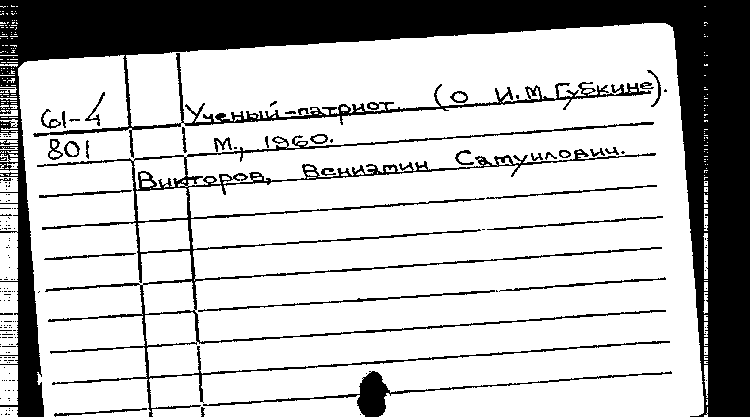 61-4 Ученый-патриот. (О И.М. Губкине).
801 М., 1960.
Викторов, Вениамин Самуилович.